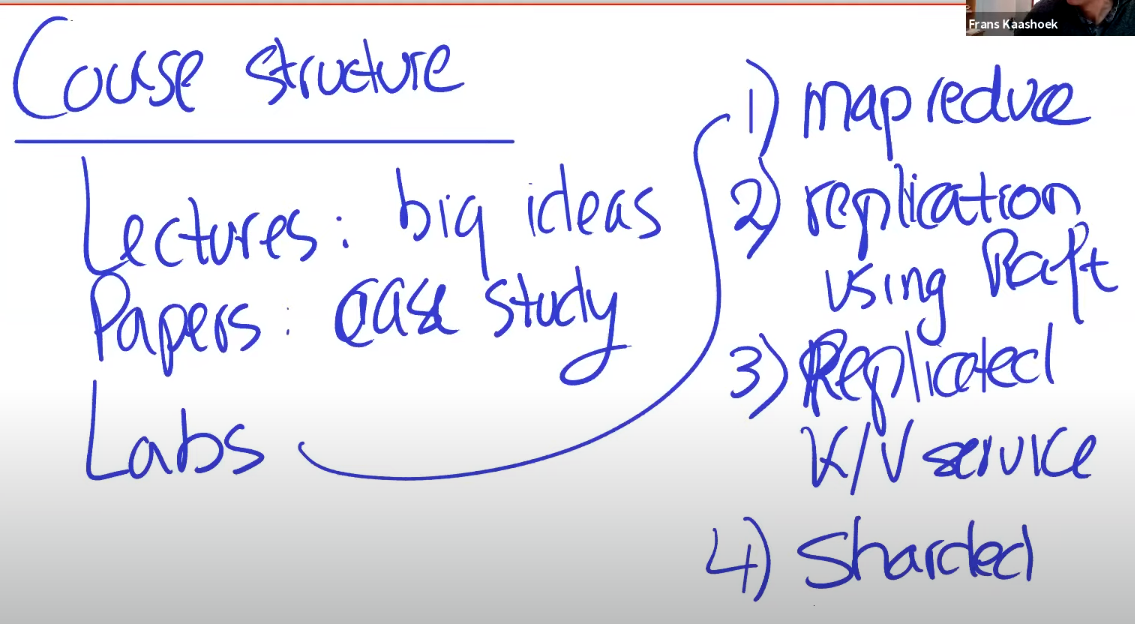 Frans Kaashoek
Couse structure
Lectures: big ideas
Papers: case study
Labs
1) map reduce
2) replication
using Raft
3) Replicated
K/V service
4) Sharded